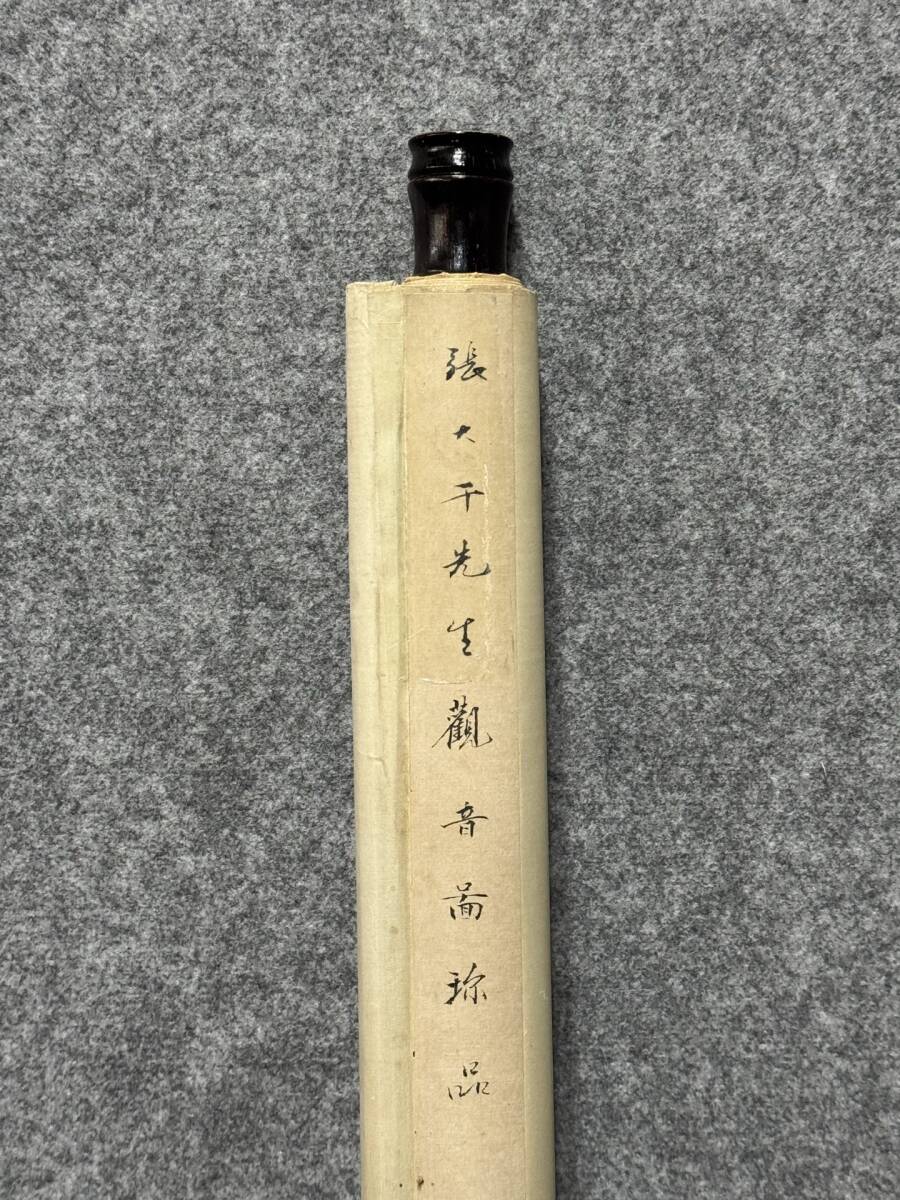 張大千先生觀音啚珎品